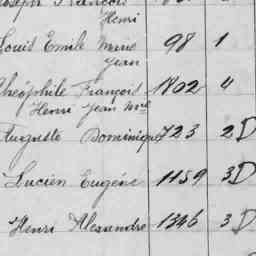 Joseph François
Henri
Louis Emile Marie 98 1
Jean
Théophile François 1802 4
Henri Jean Mie
Auguste Dominique 723 2 D
Lucien Eugéne 1159 3 D
Henri Alexandre 1346 3 D